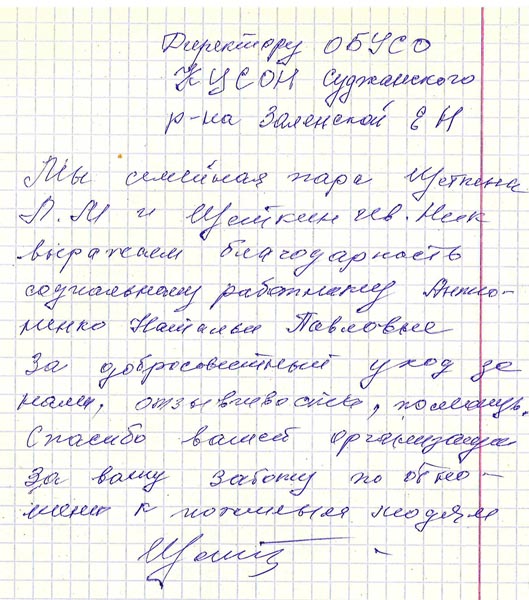 Директору ОБУСО
КЦСОН Суджанского
р-на Заленской Е Н
Мы семейная пара Щеткина
Л.М и Щеткин Ив. Ник
выражаем благодарность
социальному работнику Анто-
ненко Натальи Павловые
За добросовистный уход за
нами, отзывчивость, помощь.
Спасибо вашей организации
За вашу заботу по отно-
шени к пожилым людям